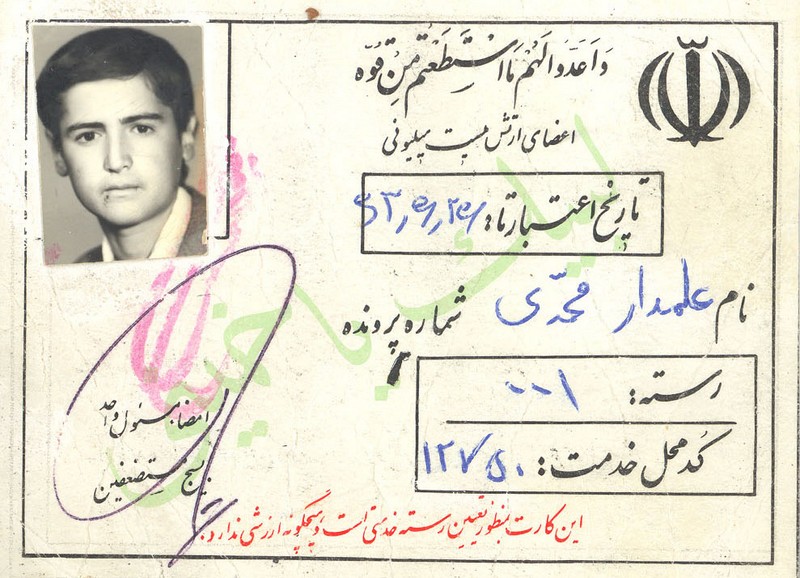 وَاَعِدّوا لَهُم مَا اسْتَطَعْتُم مِنْ قُوَّه
اعضای ارتش بیست میلیونی
تاریخ اعتبار تا:
نام علمدار محمّدی شماره پرونده
رسته: ۰۰۱
کُد محل خدمت: ۱۲۷۵۰
لبیک یا خمینی
امضاء مسئول واحد
بسیج مستضعفین
این کارت بمنظور تعیین رسته خدمتی است و هیچگونه ارزشی ندارد.